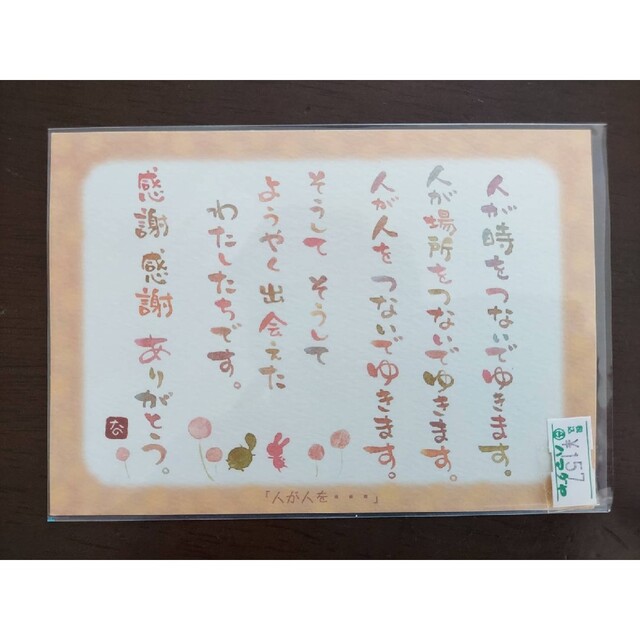 人が時をつないでゆきます。
人が場所をつないでゆきます。
人が人をつないでゆきます。
そうして そうして
ようやく出会えた
わたしたちです。
感謝 感謝 ありがとう。
「人が人を・・・」
¥157